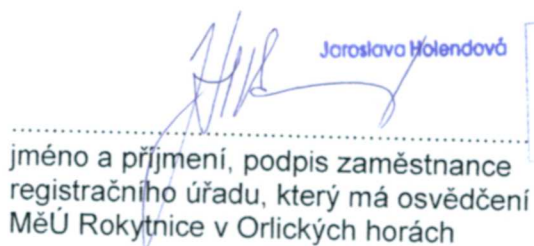 Jaroslava Holendová
jméno a příjmení, podpis zaměstnance
registračního úřadu, který má osvědčení
MěÚ Rokytnice v Orlických horách